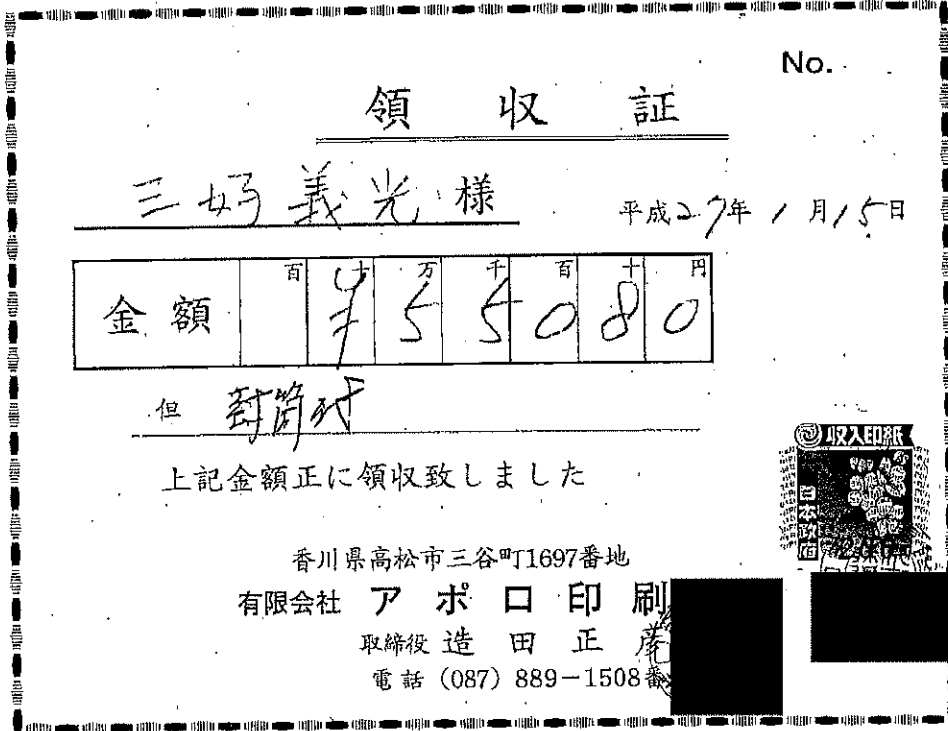 No.
領収証
三好義光様
平成27年1月15日
百 十 万 千 百 十 円
金額 ¥55080
但 封筒代
上記金額正に領収致しました
収入印紙
日本政府
200
香川県高松市三谷町1697番地
有限会社 アポロ印刷
取締役 造田正
電話 (087) 889-1508番